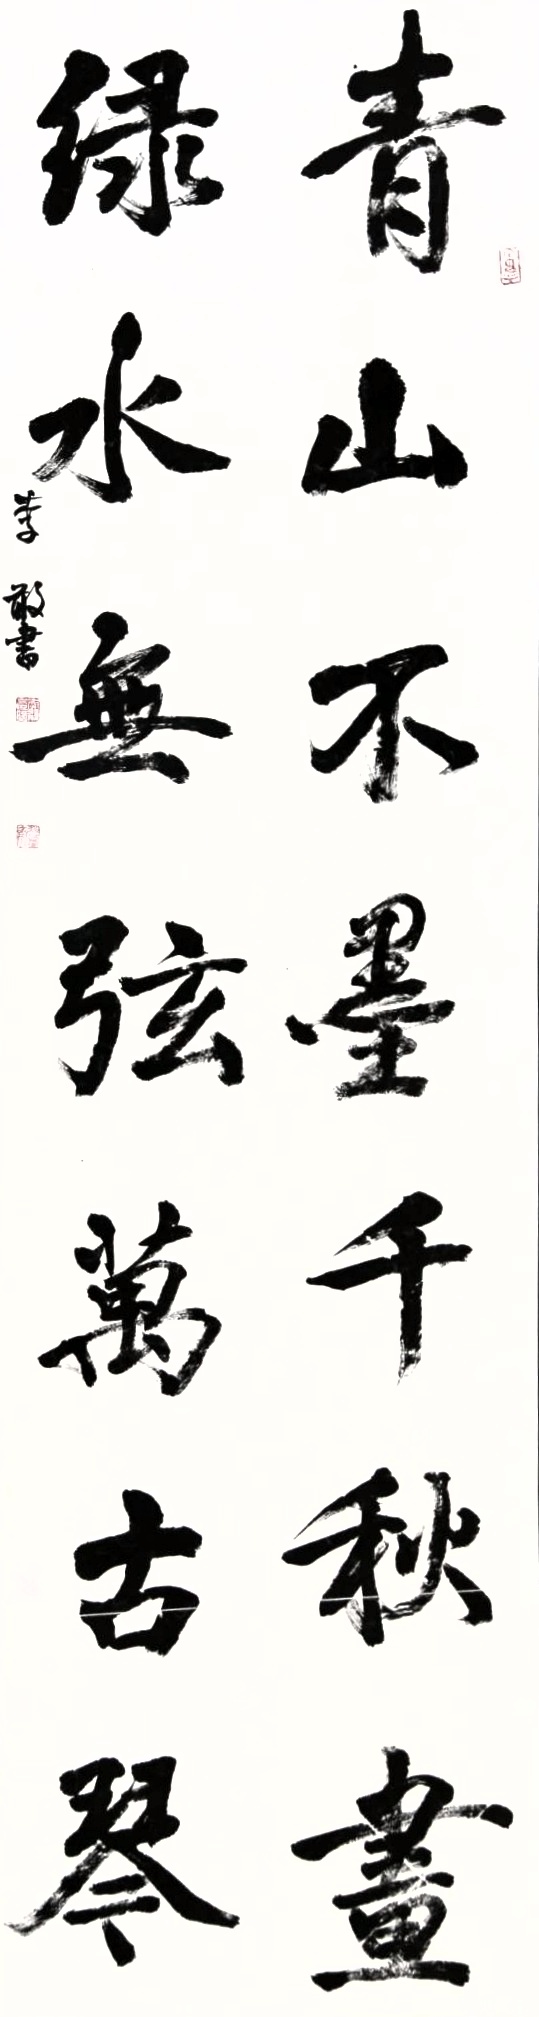 青山不墨千秋畫
绿水無弦萬古琴
李敬書